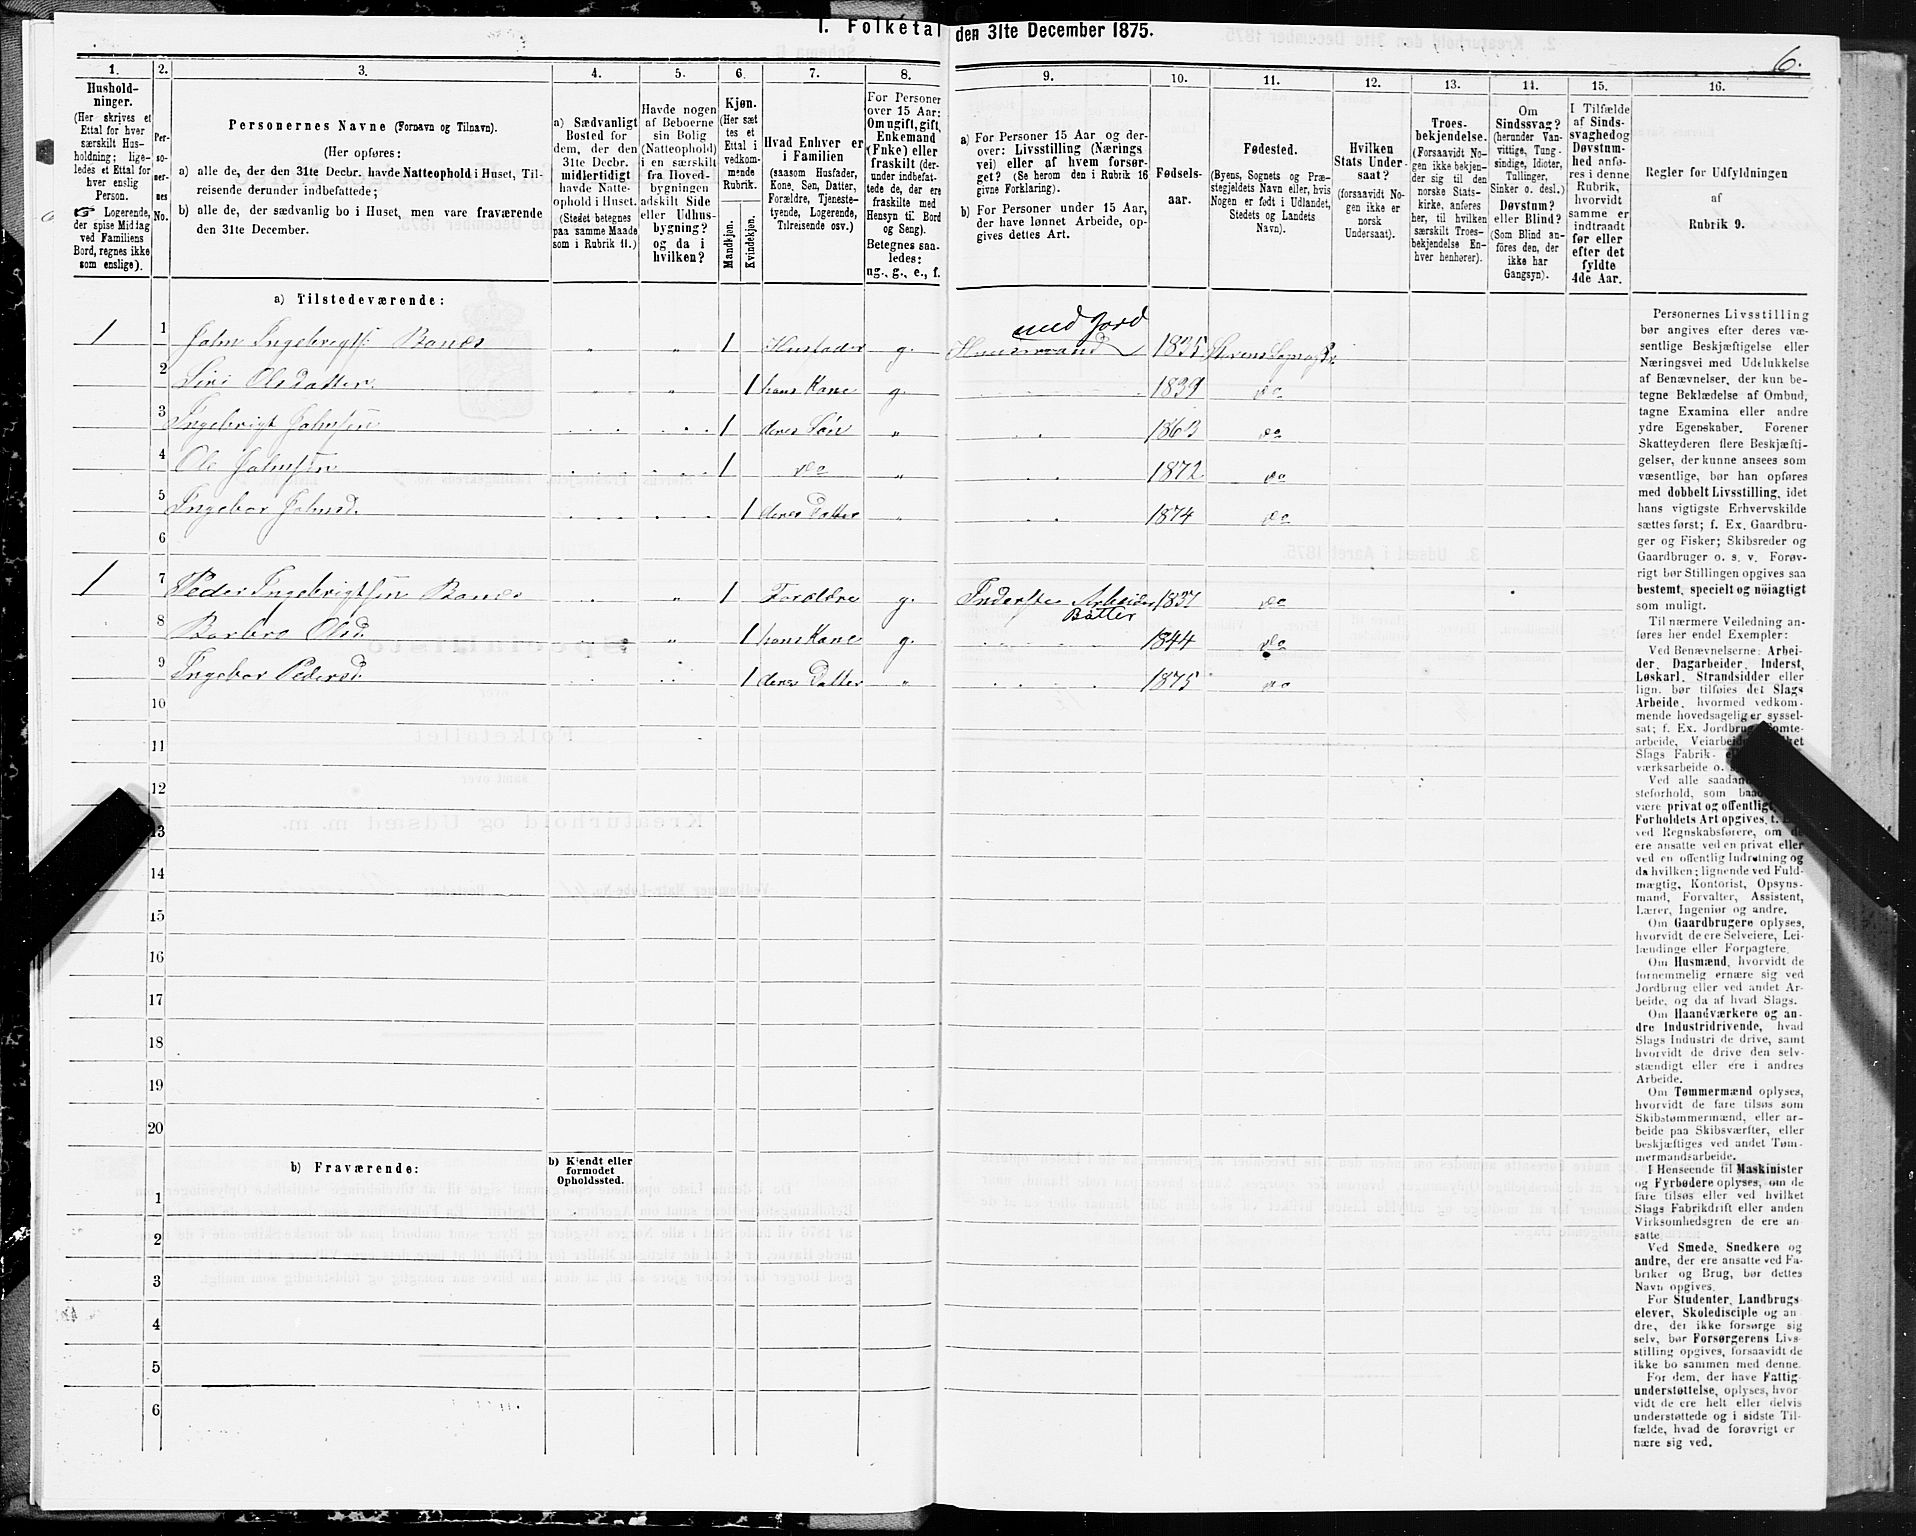 I. Folketal den 31te December 1875.
6.
1. 2. 3. 4. 5. 6. 7. 8. 9. 10. 11. 12. 13. 14. 15. 16.
Hushold-
ninger.
(Her skrives et
Ettal for hver
særskilt Hus-
holdning; lige-
ledes et Ettal for
hver enslig
Person.
☞ Logerende,
der spise Middag
ved Familiens
Bord, regnes ikke
som enslige).
Per-
so-
ner-
nes
No.
Personernes Navne (Fornavn og Tilnavn).
(Her opføres:
a) alle de, der den 31te Decbr. havde Natteophold i Huset, Til-
reisende derunder indbefattede;
b) alle de, der sædvanlig bo i Huset, men vare fraværende
den 31te December.
a) Sædvanligt
Bosted for
dem, der den
31te Decbr.
midlertidigt
havde Natte-
ophold i Huset.
(Stedet betegnes
paa samme Maade
som i Rubrik 11.)
Havde nogen
af Beboerne
sin Bolig
(Natteophold)
i en særskilt
fra Hoved-
bygningen
adskilt Side
eller Udhus-
bygning?
og da i
hvilken?
Kjøn.
(Her sæt
tes et
Ettal i
vedkom-
mende
Rubrik.
Mandkjøn.
Kvindekjøn.
Hvad Enhver er
i Familien
(saasom Husfader,
Kone, Søn, Datter,
Forældre, Tjeneste-
tyende, Logerende,
Tilreisende osv.)
For Personer
over 15 Aar:
Om ugift, gift,
Enkemand
(Enke) eller
fraskilt (der-
under indbefat-
tede de, der ere
fraskilte med
Hensyn til Bord
og Seng).
Betegnes saa-
ledes:
ug., g., e., f.
a) For Personer 15 Aar og der-
over: Livsstilling (Nærings
vei) eller af hvem forsør-
get? (Se herom den i Rubrik 16
givne Forklaring).
b) For Personer under 15 Aar,
der have lønnet Arbeide, op-
gives dettes Art.
Fødsels-
aar.
Fødested.
(Byens, Sognets og Præ-
stegjeldets Navn eller, hvis
Nogen er født i Udlandet,
Stedets og Landets
Navn).
Hvilken
Stats Under-
saat?
(forsaavidt No-
gen ikke er
norsk
Undersaat).
Troes-
bekjendelse.
(Forsaavidt No-
gen ikke bekjen-
der sig til den
norske Stats-
kirke, anføres
her, til hvilken
særskilt Troes-
bekjendelse En-
hver henhører).
Om
Sindssvag?
(herunder Van-
vittige, Tung-
sindige, Idioter,
Tullinger,
Sinker o. desl.)
Døvstum?
eller Blind?
(Som Blind an-
føres den, der
ikke har
Gangsyn).
I Tilfælde
af Sinds-
svaghed og
Døvstum-
hed anfø-
res i denne
Rubrik,
hvorvidt
samme er
indtraadt
før eller
efter det
fyldte
4de Aar.
Regler for Udfyldningen
af
Rubrik 9.
a) Tilstedeværende:
med Jord
1 1 John Ingebrigts. Bones „ „ 1 Husfader g. Huusmand 1835
2 Siri Olsdatter „ „ 1 hans Kone g. 1839 do
3 Ingebrigt Johnsen 1 deres Søn „ 1863 do
4 Ole Johnsen 1 do „ 1872 do
5 Ingebor Johnsd. 1 deres Datter „ 1874 do
6
1 7 Peder Ingebrigtsen Bones „ 1 Forældre g. Inderste Arbeider 1837 do
8 Barbro Olsd. „ 1 hans Kone g. 1844 do
9 Ingebor Pedersd. 1 deres Datter „ 1875 do
10
11
12
13
14
15
16
17
18
19
20
b) Fraværende:
b) Kjendt eller
formodet
Opholdssted.
1
2
3
4
5
6
Personernes Livsstilling
bør angives efter deres væ-
sentlige Beskjæftigelse eller
Næringsvei med Udelukkelse
af Benævnelser, der kun be-
tegne Beklædelse af Ombud,
tagne Examina eller andre
ydre Egenskaber. Forener
Skatteyderen flere Beskjæfti-
gelser, der kunne ansees som
væsentlige, bør han opføres
med dobbelt Livsstilling, idet
hans vigtigste Erhvervskilde
sættes først; f. Ex. Gaardbru-
ger og Fisker; Skibsreder og
Gaardbruger o. s. v. Forøv-
rigt bør Stillingen opgives saa
bestemt, specielt og nöiagtigt
som muligt.
Til nærmere Veiledning an-
føres her endel Exempler:
Ved Benævnelserne: Arbei-
der, Dagarbeider, Inderst,
Løskarl, Strandsidder eller
lign. bør tilføies det Slags
Arbeide, hvormed vedkom-
mende hovedsagelig er syssel-
sat; f. Ex. Jordbrug, Tomte-
arbeide,
Slags Fabrik-
værksarbeide o.
Ved alle
steforhold, som
være privat og offentligt,
Forholdets Art opgives,
ved Regnskabsførere, om de
ere ansatte ved en privat eller
ved en offentlig Indretning og
da hvilken; lignende ved Fuld-
mægtig, Kontorist, Opsyns-
mand, Forvalter, Assistent,
Lærer, Ingeniør og andre.
Om Gaardbrugere oplyses,
hvorvidt de ere Selveiere, Lei-
lændinge eller Forpagtere.
Om Husmænd, hvorvidt de
fornemmelig ernære sig ved
Jordbrug eller ved andet Ar-
beide, og da af hvad Slags.
Om Haandværkere og an-
dre Industridrivende, hvad
Slags Industri de drive, samt
hvorvidt de drive den selv-
stændigt eller ere i andres
Arbeide.
Om Tømmermænd oplyses,
hvorvidt de fare tilsøs som
Skibstømmermænd, eller ar-
beide paa Skibsværfter, eller
beskjæftiges ved andet Tøm-
mermandsarbeide.
I Henseende til Maskinister
og Fyrbødere oplyses, om de
fare tilsøs eller ved hvilket
Slags Fabrikdrift eller anden
Virksomhedsgren de ere an-
satte.
Ved Smede, Snedkere og
andre, der ere ansatte ved Fa-
briker og Brug, bør dettes
Navn opgives.
For Studenter, Landbrugs-
elever, Skoledisciple og an-
dre, der ikke forsørge sig
selv, bør Forsørgerens Livs-
stilling opgives, forsaavidt de
ikke bo sammen med denne.
For dem, der have Fattig-
understøttelse, oplyses, hvor
vidt de ere helt eller delvis
understøttede og i sidste Til-
fælde, hvad de forøvrigt er
nære sig ved.